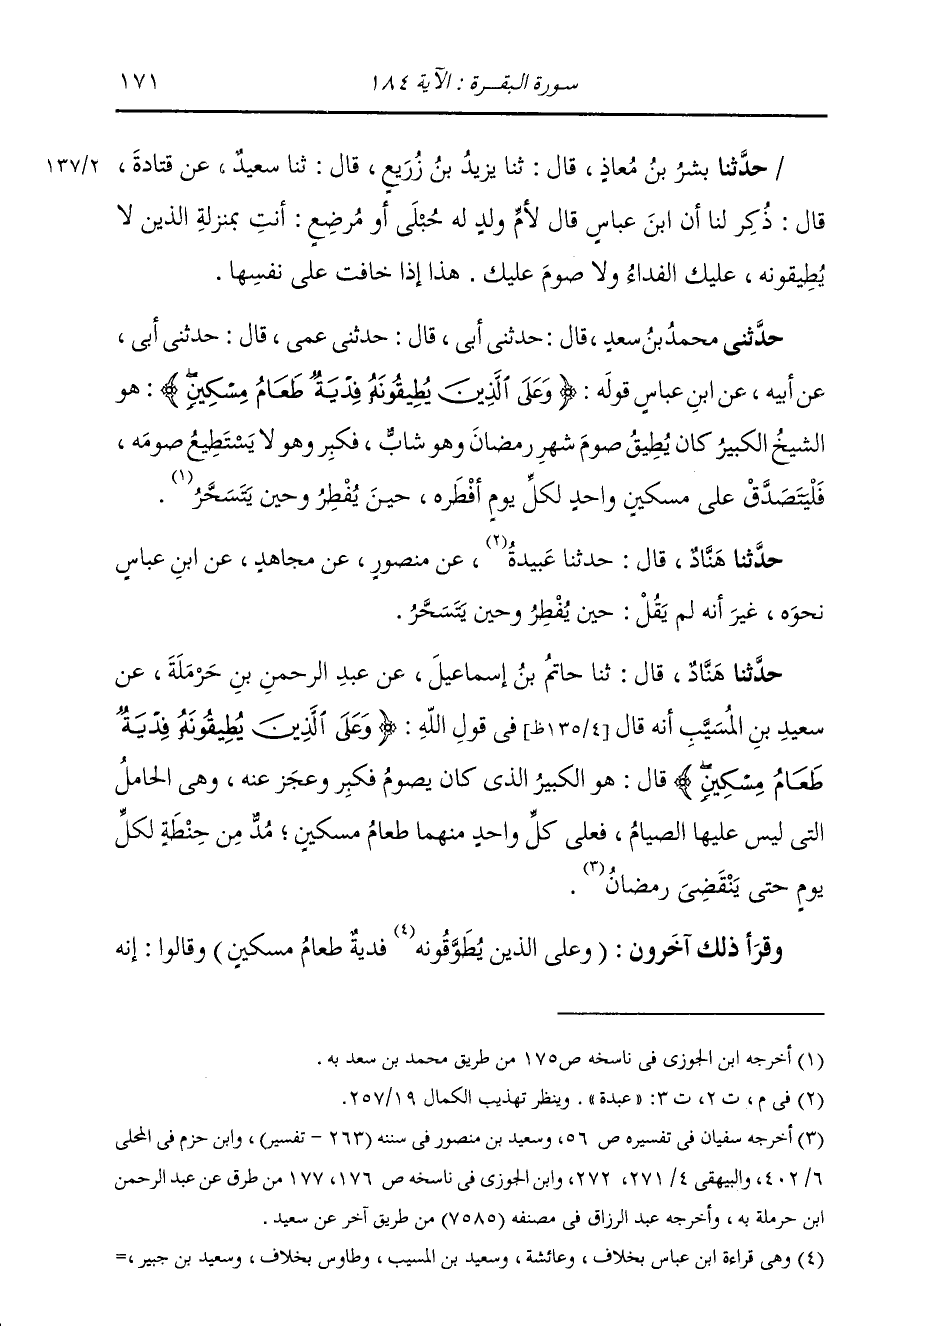 سورة البقرة : الآية ١٨٤
١٧١
/ حدَّثنا بشرُ بنُ مُعاذٍ ، قال : ثنا يزيدُ بنُ زُرَيعٍ ، قال : ثنا سعيدٌ ، عن قتادةَ ،
١٣٧/٢
قال : ذُكِر لنا أن ابنَ عباسٍ قال لأمِّ ولدٍ له حُبْلَى أو مُرضِعٍ : أنتِ بمنزلةِ الذين لا
يُطِيقونه ، عليك الفداءُ ولا صومَ عليك . هذا إذا خافت على نفسِها .
حدَّثنى محمدُ بنُ سعدٍ ، قال : حدثنى أبى ، قال : حدثنى عمى ، قال : حدثنى أبى ،
عن أبيه ، عن ابنِ عباسٍ قولَه : ﴿ وَعَلَى ٱلَّذِينَ يُطِيقُونَهُۥ فِدْيَةٌ طَعَامُ مِسْكِينٍۖ ﴾ : هو
الشيخُ الكبيرُ كان يُطِيقُ صومَ شهرِ رمضانَ وهو شابٌّ ، فكبِر وهو لا يَسْتَطِيعُ صومَه ،
فَلْيَتَصَدَّقْ على مسكينٍ واحدٍ لكلِّ يومٍ أفْطَره ، حينَ يُفْطِرُ وحين يَتَسَحَّرُ(١) .
حدَّثنا هَنَّادٌ ، قال : حدثنا عَبيدةُ(٢) ، عن منصورٍ ، عن مجاهدٍ ، عن ابنِ عباسٍ
نحوَه ، غيرَ أنه لم يَقُلْ : حين يُفْطِرُ وحين يَتَسَحَّرُ .
حدَّثنا هَنَّادٌ ، قال : ثنا حاتمُ بنُ إسماعيلَ ، عن عبدِ الرحمنِ بنِ حَرْمَلَةَ ، عن
سعيدِ بنِ المُسَيَّبِ أنه قال [١٣٥/٤ظ] فى قولِ اللّهِ : ﴿ وَعَلَى ٱلَّذِينَ يُطِيقُونَهُۥ فِدْيَةٌ
طَعَامُ مِسْكِينٍۖ ﴾ قال : هو الكبيرُ الذى كان يصومُ فكبِر وعجَز عنه ، وهى الحاملُ
التى ليس عليها الصيامُ ، فعلى كلِّ واحدٍ منهما طعامُ مسكينٍ ؛ مُدٌّ مِن حِنْطَةٍ لكلِّ
يومٍ حتى يَنْقَضِىَ رمضانُ(٣) .
وقرَأ ذلك آخَرون : ( وعلى الذين يُطَوَّقُونه(٤) فديةٌ طعامُ مسكينٍ ) وقالوا : إنه
(١) أخرجه ابن الجوزى فى ناسخه ص١٧٥ من طريق محمد بن سعد به .
(٢) فى م ، ت ٢، ت ٣: « عبدة » . وينظر تهذيب الكمال ٢٥٧/١٩.
(٣) أخرجه سفيان فى تفسيره ص ٥٦، وسعيد بن منصور فى سننه (٢٦٣ - تفسير) ، وابن حزم فى المحلى
٦/ ٤٠٢، والبيهقى ٤/ ٢٧١، ٢٧٢، وابن الجوزى فى ناسخه ص ١٧٦، ١٧٧ من طرق عن عبد الرحمن
ابن حرملة به ، وأخرجه عبد الرزاق فى مصنفه (٧٥٨٥) من طريق آخر عن سعيد .
(٤) وهى قراءة ابن عباس بخلاف ، وعائشة ، وسعيد بن المسيب ، وطاوس بخلاف ، وسعيد بن جبير ،=